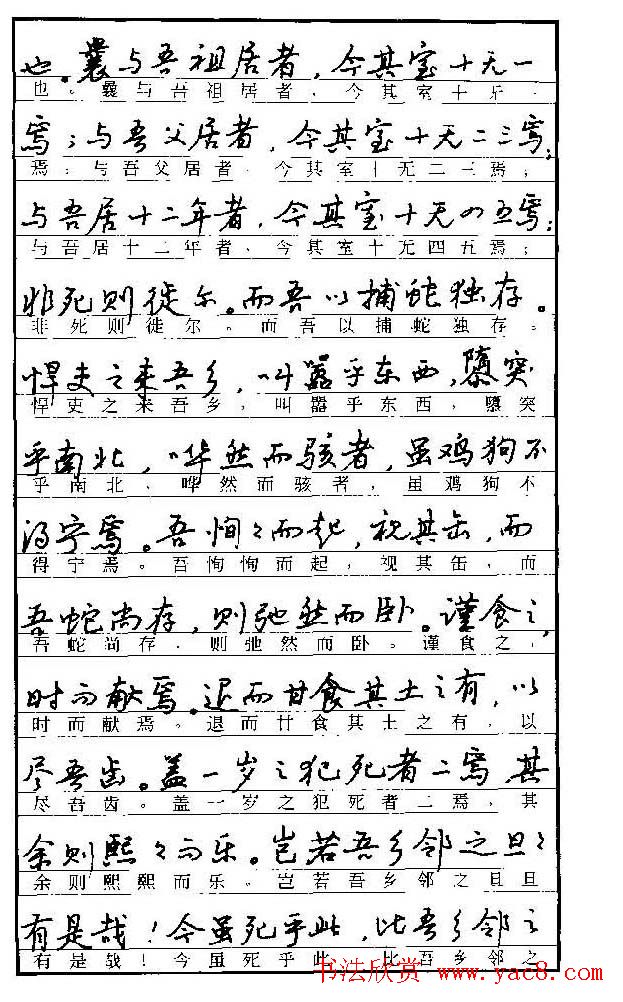 也。曩与吾祖居者，今其室十无一
也。曩与吾祖居者，今其室十无一
焉；与吾父居者，今其室十无二三焉；
焉；与吾父居者，今其室十无二三焉；
与吾居十二年者，今其室十无四五焉；
与吾居十二年者，今其室十无四五焉；
非死则徙尔。而吾以捕蛇独存。
非死则徙尔。而吾以捕蛇独存。
悍吏之来吾乡，叫嚣乎东西，隳突
悍吏之来吾乡，叫嚣乎东西，隳突
乎南北，哗然而骇者，虽鸡狗不
乎南北，哗然而骇者，虽鸡狗不
得宁焉。吾恂々而起，视其缶，而
得宁焉。吾恂恂而起，视其缶，而
吾蛇尚存，则弛然而卧。谨食之，
吾蛇尚存，则弛然而卧。谨食之，
时而献焉。退而甘食其土之有，以
时而献焉。退而甘食其土之有，以
尽吾齿。盖一岁之犯死者二焉，其
尽吾齿。盖一岁之犯死者二焉，其
余则熙々而乐。岂若吾乡邻之旦々
余则熙熙而乐。岂若吾乡邻之旦旦
有是哉！今虽死乎此，比吾乡邻之
有是哉！今虽死乎此，比吾乡邻之
书法欣赏 www.yac8.com